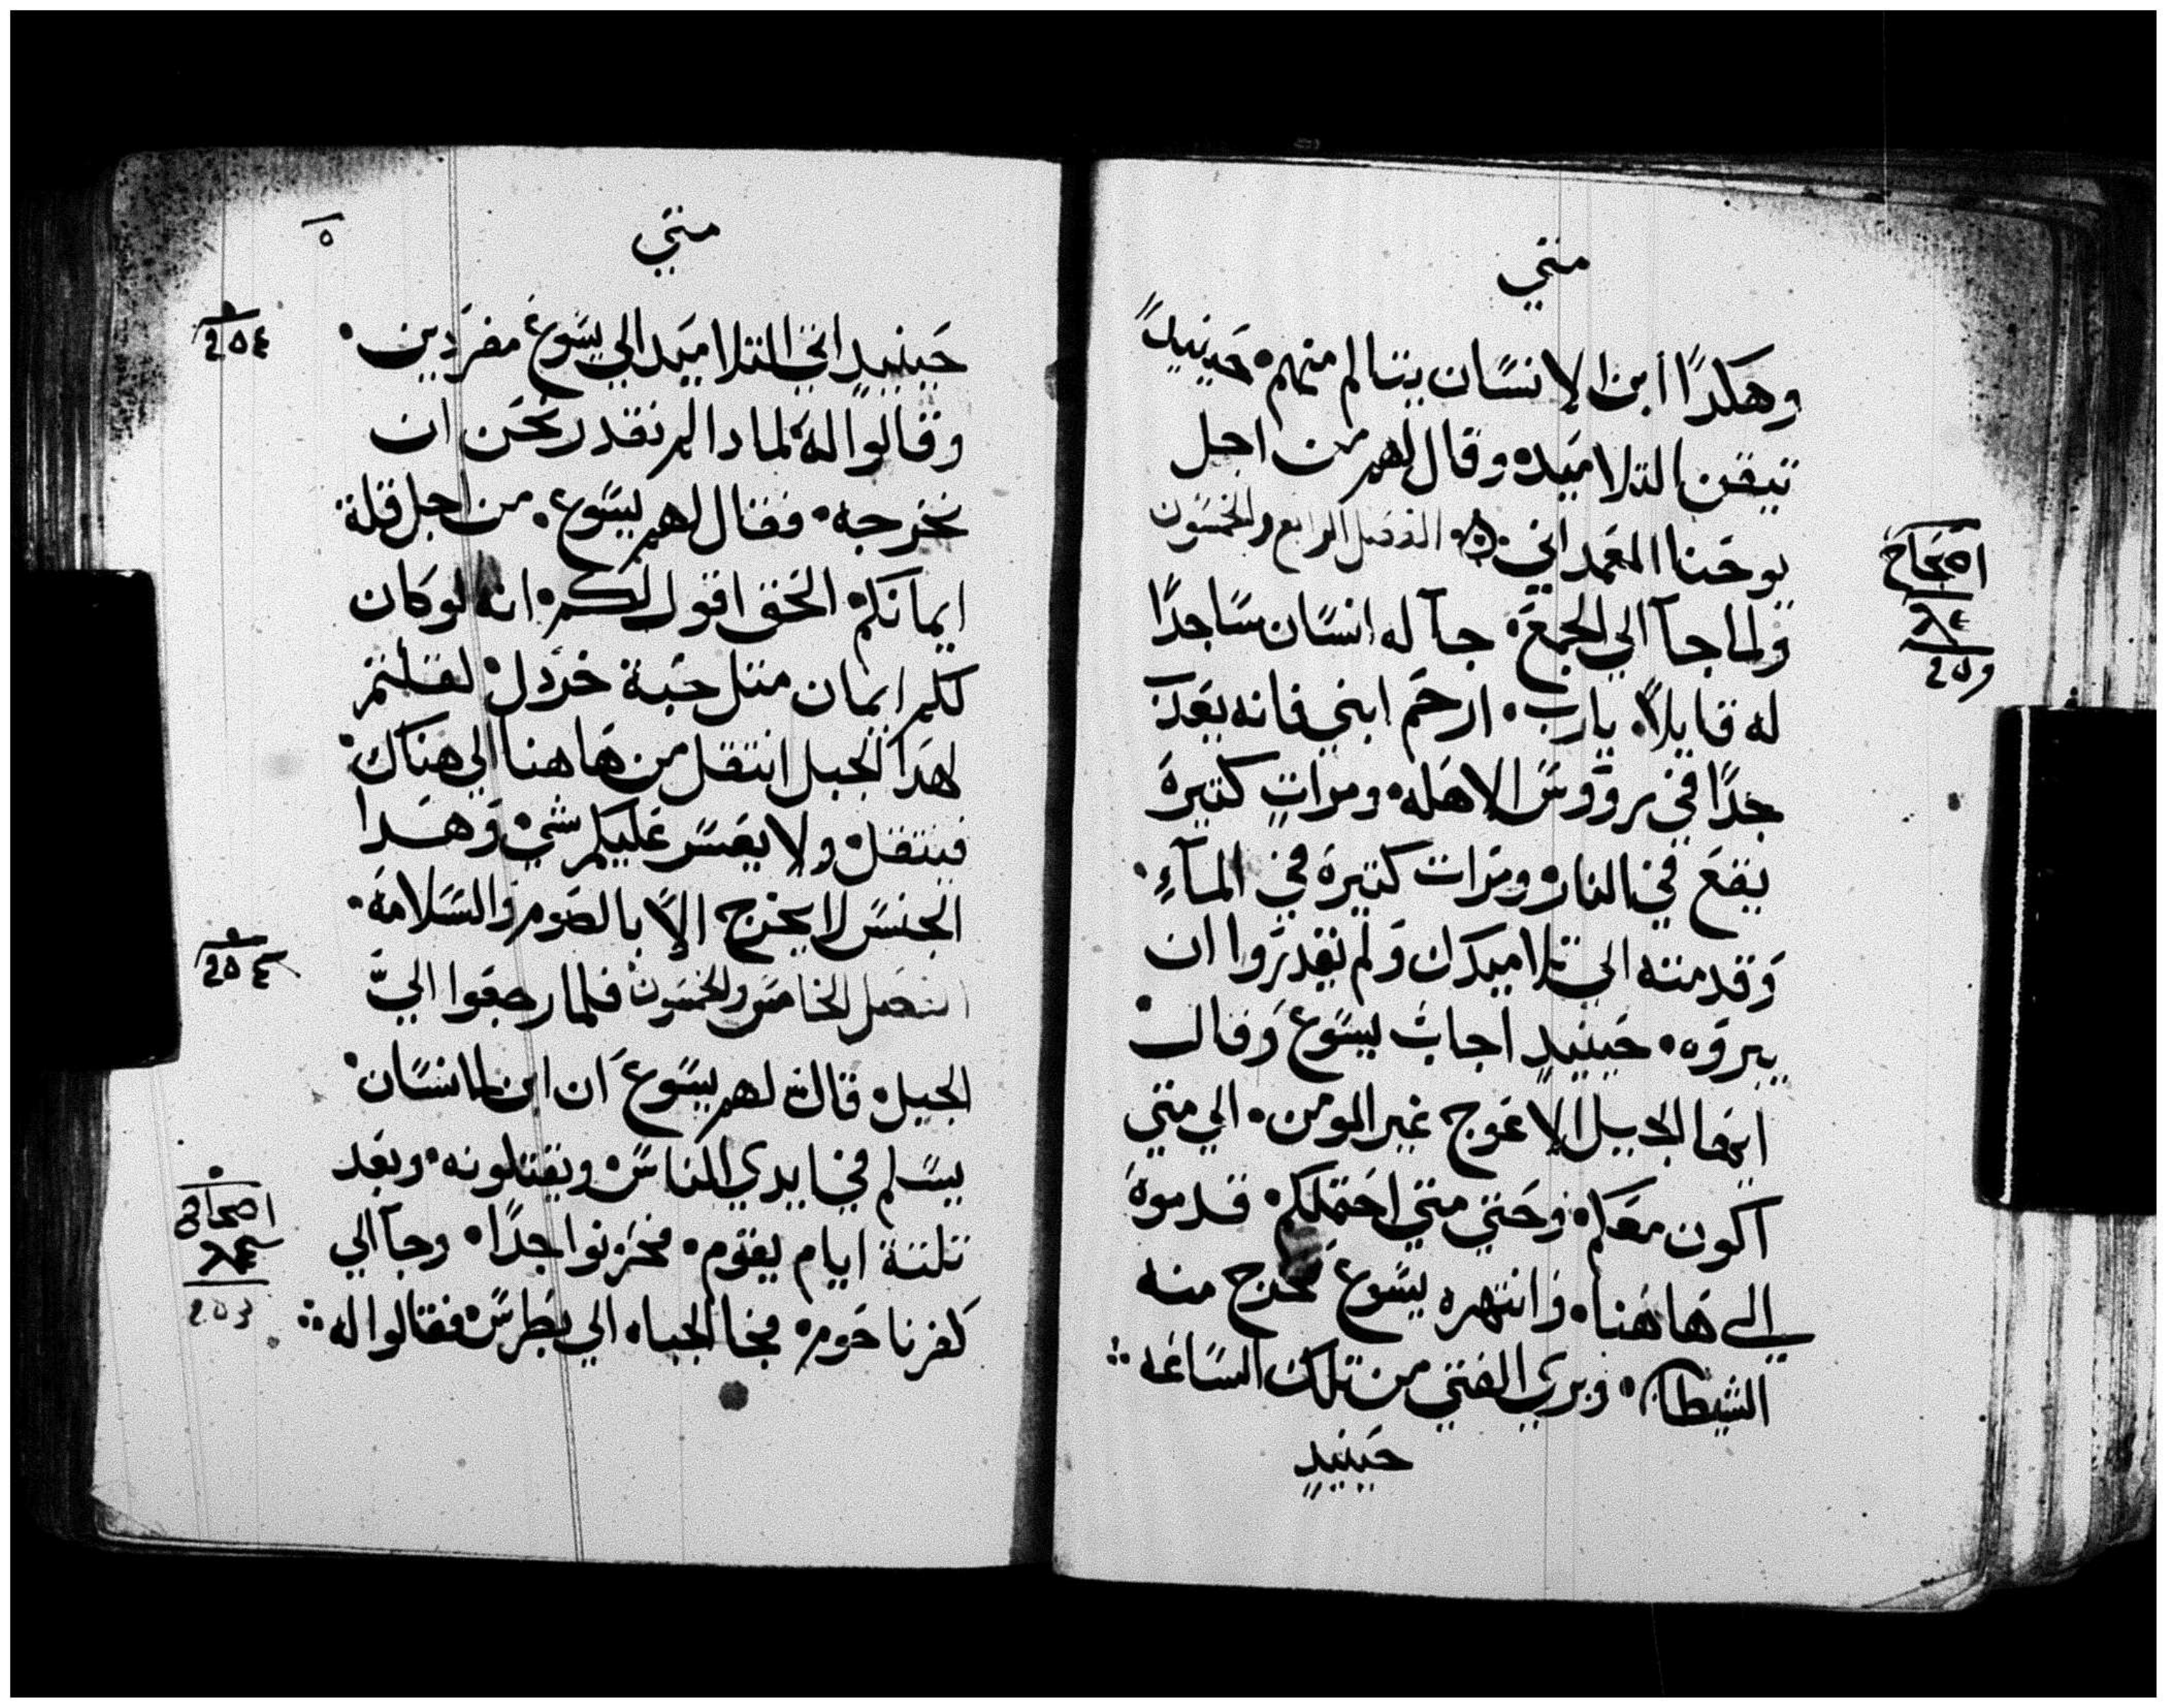 متي
وهكدًا ابن الانسَان يتالم منهم۰ حَينيدٍ
تيقن التلاميَد۰ وقال لهم من اجل
يوحَنا المعَمداني۰ الفصَل الرابع والخمسَون
ولما جآ الي الجمعَ۰ جآ له انسَان سَاجدًا
له قايلاً۰ يارب۰ ارحَم ابني فانه يعَدب
جدًا في رووسَ الاهله۰ ومرات كتيرة
يقعَ في النار۰ ومرات كتيرة في المآءِ۰
وقدمته الي تلاميدك ولم يقدروا ان
يبروه۰ حَينيدٍ اجاب يسَوعَ وقال
ايها الجيل الاعَوج غير المومن۰ الي متي
اكون معَكم۰ وحَتي متي احَتملكم۰ قدموة
الي هَاهَنا۰ وانتهره يسَوعَ فخرج منه
الشيطان۰ وبري الفتي من تلك السَاعَه
حَينيدٍ
اصَحَاح
٢٥٩
متي
٥
حَينيدٍ اتي التلاميَد الي يسَوعَ مفرَدين۰
وقالوا له لمادا لم نقدر نحَن ان
نخرجه۰ فقال لهم يسَوع۰ من اجل قلة
ايمانكم۰ الحَق اقول لكم۰ انه لو كان
لكم ايمان متل حَبة خردل۰ لقلتم
لهدا الجبل انتقل من هَاهنا الي هناك۰
فينتقل۰ ولا يعَسَر عَليكم شي۰ وهدا
الجنسَ لا يخرج الاَ بالصَوم والسَلامة۰
الفصَل الخامسَ والخمسَون فلما رجعَوا الي
الجيل۰ قال لهم يسَوعَ ان ابن الانسَان
يسَلم في ايدي الناسَ۰ ويقتلونه۰ وبعَد
تلتة ايام يقوم۰ فحَزنوا جدًا۰ وجآ الي
كفرناحَوم۰ فجا الجباه الي بطرسَ۰ فقالوا له
٢٥٤
٢٥٤
اصحاح
٢٥٩